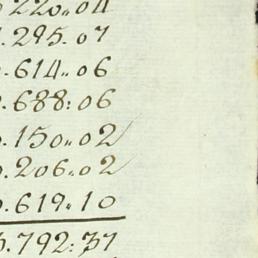 220..04
.295.07
.614..06
.688:06
.150..02
.206.02
.619.10
.792:37